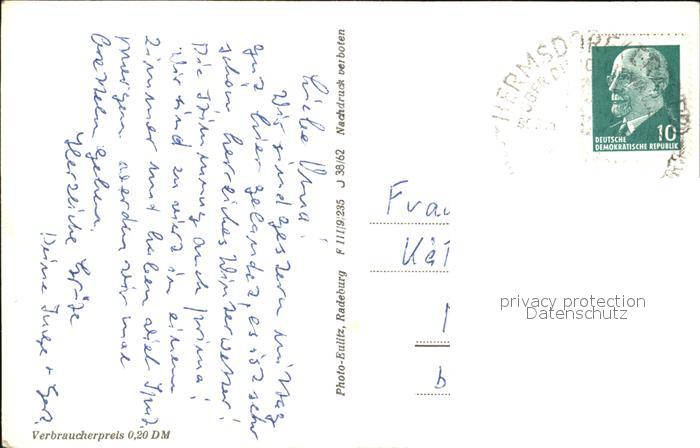 Liebe Oma!
Wir sind gestern mittag
gut hier gelandet, es ist sehr
schön, herrliches Winterwetter!
Die Stimmung auch prima!
Wir sind zu viert in einem
Zimmer und haben viel Spaß.
morgen werden wir mal
gehen.
Herzliche Grüße
Deine Inge +
Verbraucherpreis 0,20 DM
Photo-Eulitz, Radeburg F III/9/235 J 38/62 Nachdruck verboten
HERMSDORF
ÜBER
10
DEUTSCHE
DEMOKRATISCHE REPUBLIK
Frau
Kät
privacy protection
Datenschutz